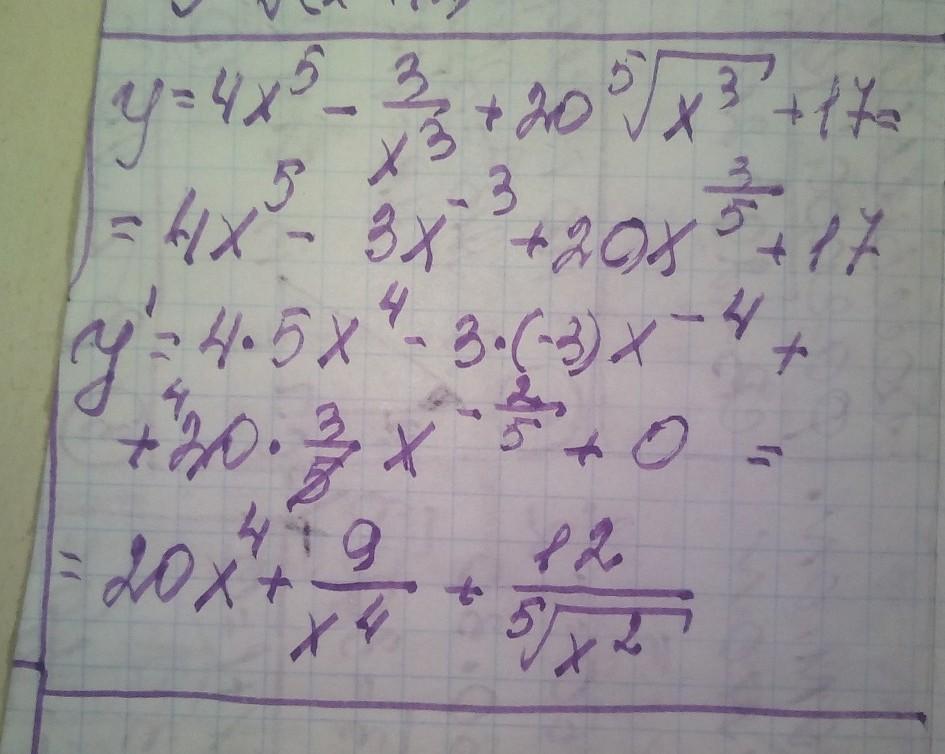 y = 4x⁵ - 3/x³ + 20 ⁵√x³ + 17 =
= 4x⁵ - 3x⁻³ + 20x^(3/5) + 17
y' = 4·5x⁴ - 3·(-3)x⁻⁴ +
+ ⁴20 · 3/5 x^(-2/5) + 0 =
= 20x⁴ + 9/x⁴ + 12/⁵√x²